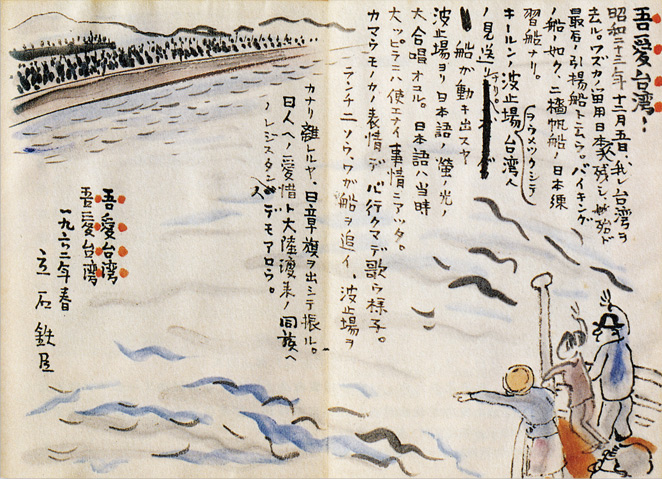 吾愛台湾!
昭和二十三年十二月五日、我レ台湾ヲ
去ル。ワズカノ留用日本人ヲ残シ殆ド
最后ノ引揚船トテウ。バイキング
ノ船ノ如ク、二檣帆船ノ日本練
習船ナリ。
キールンノ波止場ヲウヅクシテ台湾人
ノ見送リ
船が動キ出スヤ
波止場ヨリ日本語ノ螢ノ光ノ
大合唱オコル。日本語ハ当時
大ッピラニハ使エナイ事情ニアッタ。
カマウモノカノ表情デ 行クマデ歌ウ様子。
ランチ ワガ船ヲ追イ、波止場ヲ
カナリ離レルヤ、日章旗ヲ出シテ振ル。
日人ヘノ愛惜ト大陸渡来ノ同族ヘ
ノレジスタンスデモアロウ。
吾愛台湾
吾愛台湾
一九六二年春
立石鉄臣